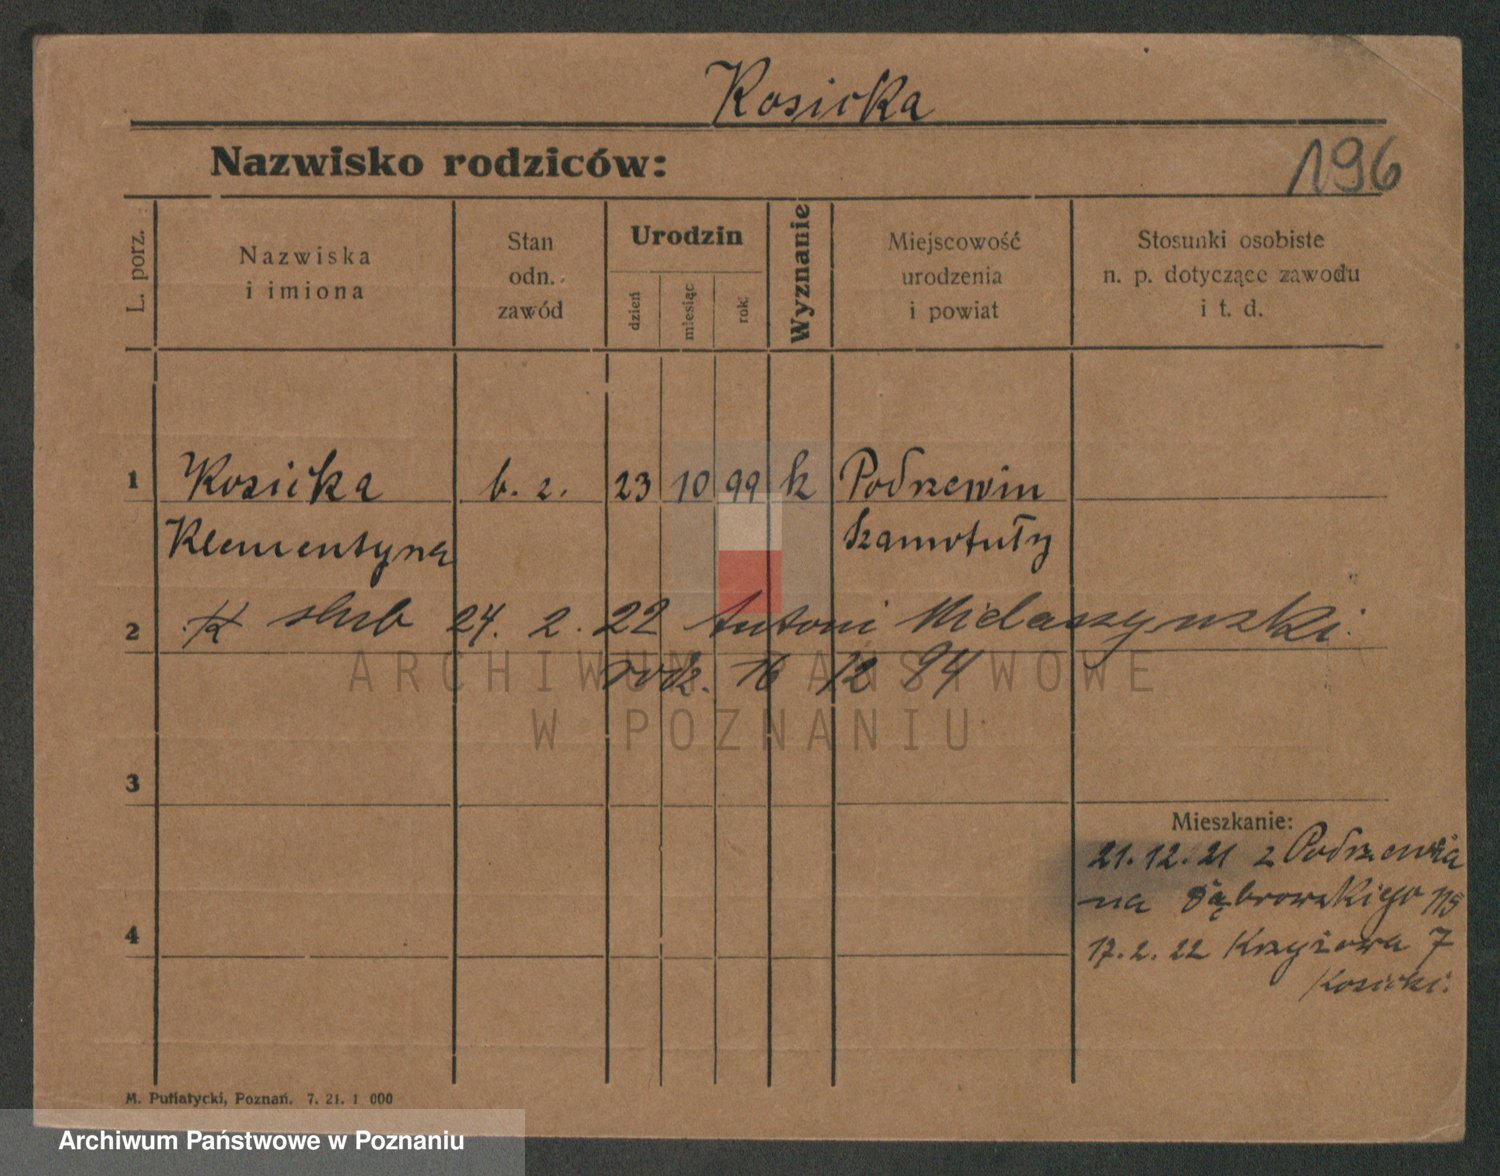 Kosicka
Nazwisko rodziców:
196
L. porz.
Nazwiska
i imiona
Stan
odn.
zawód
Urodzin
dzień
miesiąc
rok
Wyznanie
Miejscowość
urodzenia
i powiat
Stosunki osobiste
n. p. dotyczące zawodu
i t. d.
1 Kosicka b. z. 23 10 99 k Podrzewin
Klementyna Szamotuły
2 ślub 24. 2. 22 Antoni Mielaszynski.
rodz. 16 12 94
ARCHIWUM PAŃSTWOWE
W POZNANIU
3
Mieszkanie:
21.12.21 z Podrzewia
na Dąbrowskiego 115
4
17.2.22 Krzyżowa 7
Kosicki.
M. Putiatycki, Poznań. 7. 21. 1 000
Archiwum Państwowe w Poznaniu